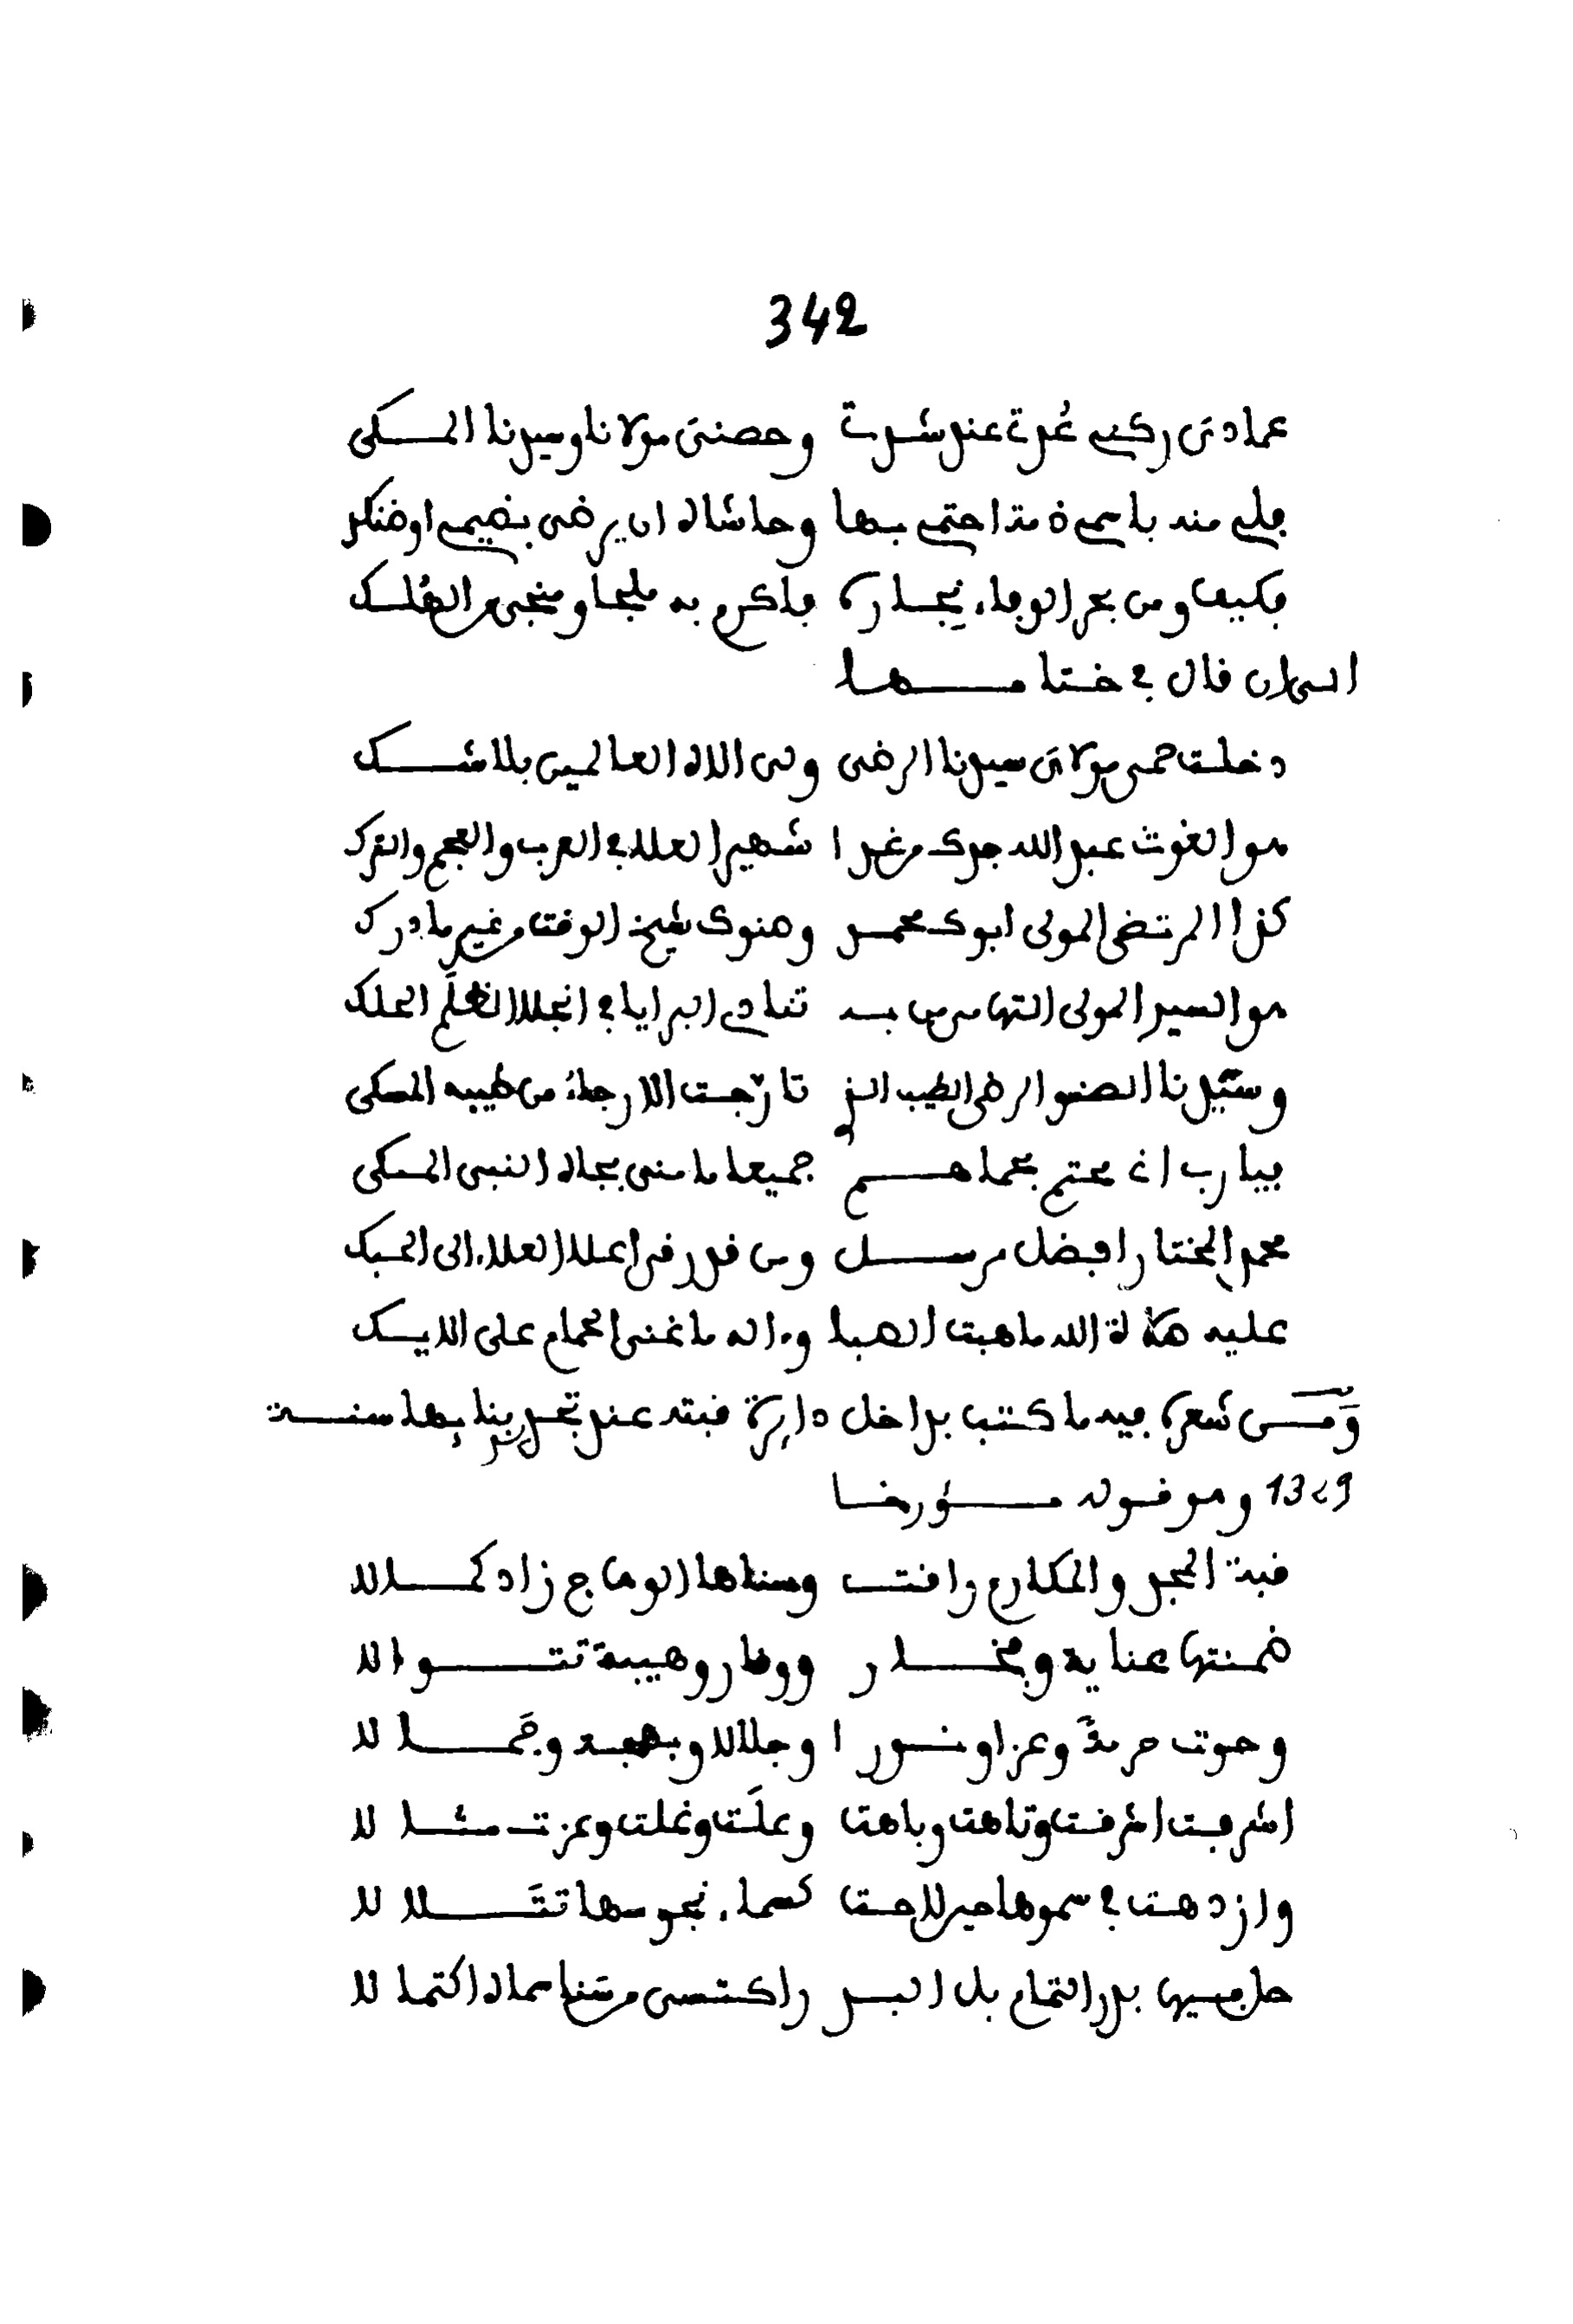 342
عمادي ركني عدتي عند شدتي وحصني مولانا وسيدنا المكي
فلي منه باسمي ذمة احتمي بها وحاشاه ان يرضى بضيمي او ضنك
فكيف ومن بحر الوفاء نجاره فاكرم به ملجا ومنجى من الهلك
الى ان قال في ختامها
دخلت حمى مولاي سيدنا الرضى ولي الاله العالمين بلا شك
هو الغوث عبد الله جدك من غدا شهير العلا في العرب والعجم والترك
كذا المرتضى المولى ابوك محمد وصنوك شيخ الوقت من غير ما درك
هو السيد المولى التهامي من به تنادي البرايا في انجلا الظلم الحلك
وسيدنا الصنو الرضى الطيب الذي تارجت الارجاء من طيبه المسكي
فيا رب اني محتم بحماهم جميعا مامني بجاه النبي المكي
محمد المختار افضل مرسل ومن قدره قد اعلا العلاء الى الحبك
عليه صلاة الله ما هبت الصبا وءاله ما غنى الحمام على الايك
ومن شعره فيه ما كتب بداخل دايرة قبته عند تجديد بنايها سنة
1329 وهو قوله مؤرخا
قبة المجد والمكارم راقت وسناها الوهاج زاد كمالا
ضمنتها عناية وفخار ووقار وهيبة تتوالا
وحوت حرمة وعزا ونورا وجلالا وبهجة وجمالا
اشرفت اشرقت وتاهت وباهت وعلت وغلت وعزت مثالا
وازدهت في سموها حين لاحت كسماء نجومها تتلالا
حل فيها بدر التمام بل البدر اكتسى من سنا سماه اكتمالا